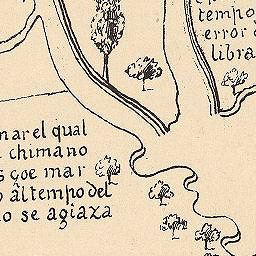 tempo
error
libra
mar el qual
chimano
çoe mar
altempo del
o se agiaza